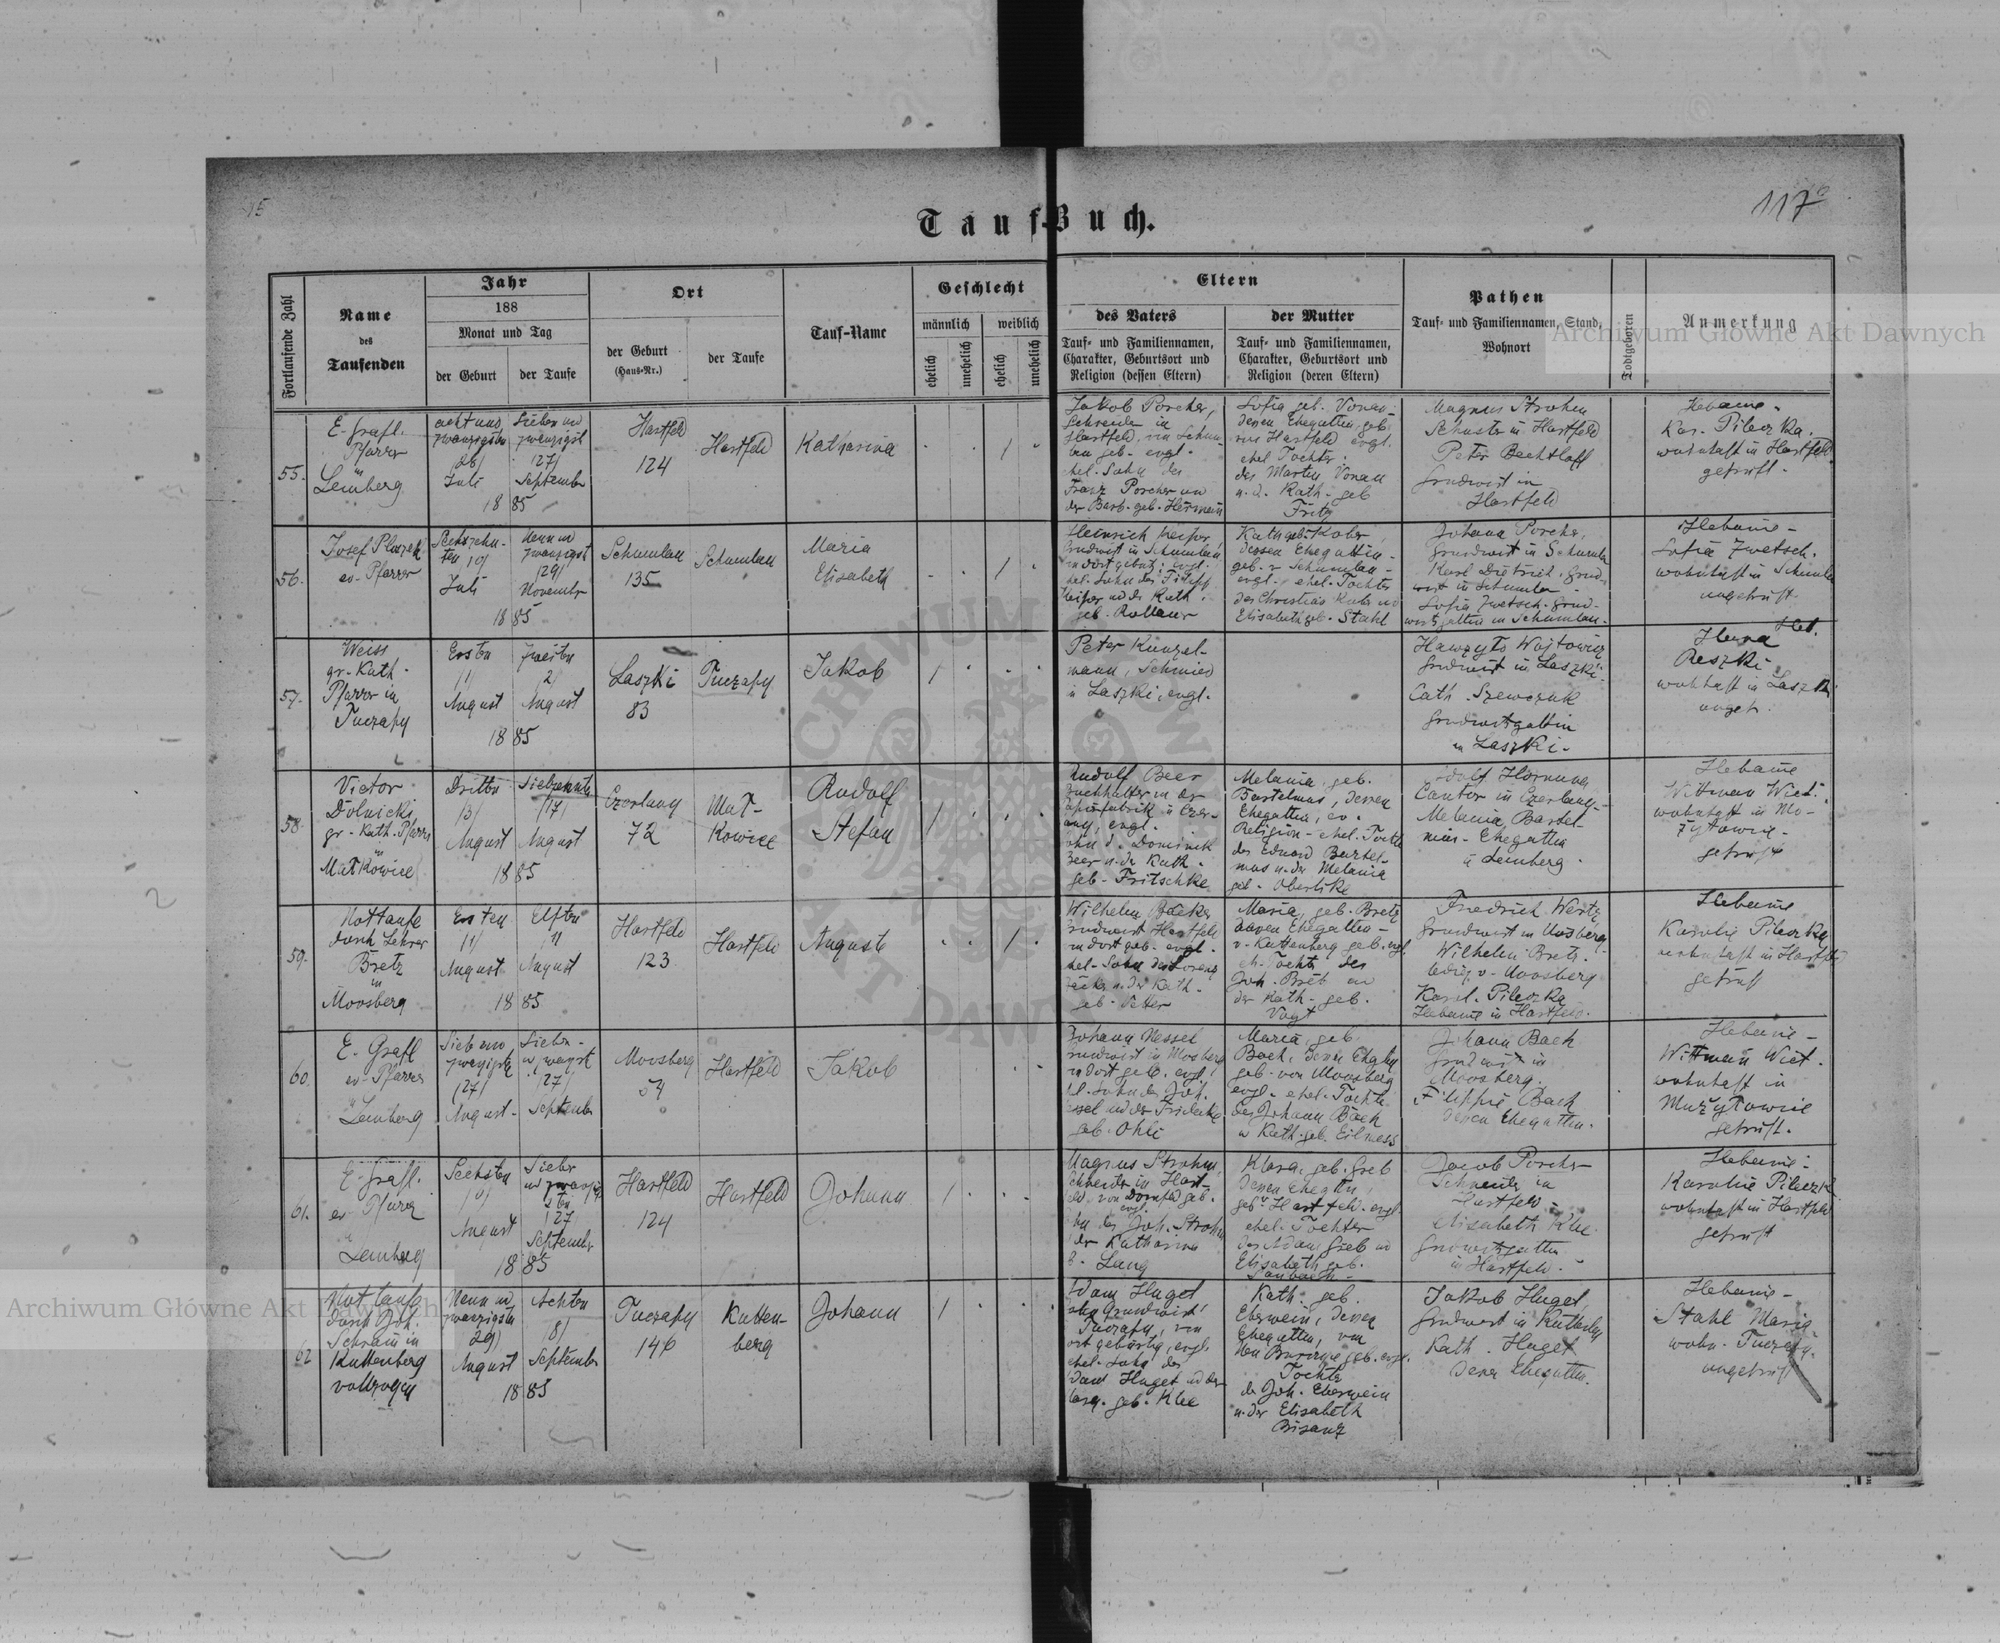 15
117
Tauf-Buch.
Fortlaufende Zahl
Name
des
Taufenden
Jahr
188
Monat und Tag
der Geburt
der Taufe
Ort
der Geburt
(Haus-Nr.)
der Taufe
Tauf-Name
Geschlecht
männlich
weiblich
ehelich
unehelich
ehelich
unehelich
Eltern
des Vaters
Tauf- und Familiennamen,
Charakter, Geburtsort und
Religion (dessen Eltern)
der Mutter
Tauf- und Familiennamen,
Charakter, Geburtsort und
Religion (deren Eltern)
Pathen
Tauf- und Familiennamen, Stand,
Wohnort
Todtgeboren
Anmerkung
Archiwum Główne Akt Dawnych
55.
E. Grafl.
Pfarrer
in
Lemberg
acht und
zwanzigsten
28/
Juli
Sieben und
zwanzigst
27/
September
1885
Hartfeld
124
Hartfeld
Katharina
Jakob Porcher,
Schneider in
Hartfeld, von
geb. evgl.
ehel. Sohn des
Franz Porcher und
der Barb. geb. Hermann
Sofia geb. Vonau
dessen Ehegattin, geb.
von Hartfeld evgl.
ehel. Tochter
des Martin Vonau
u. d. Kath. geb
Fritz
Magnus Strohm
Schuster in Hartfeld
Peter Bechtloff
Grundwirt in
Hartfeld
Hebame
Kar. Pileczka
wohnhaft in Hartfeld
geprüft.
56.
Josef Pluszek
ev. Pfarrer
Sechszehn-
ten
Juli
Neun und
zwanzigst
29/
November
1885
Schumlau
135
Schumlau
Maria
Elisabeth
Heinrich
Grundwirt in Schumlau
ehel. Sohn des
und der Kath.
geb. Rollauer
Kath geb. Kober,
dessen Ehegattin
geb. v. Schumlau
evgl. ehel. Tochter
des Christian
Elisabeth geb. Stahl
Johann Porcher,
Grundwirt in Schumlau
Karl Dietrich, Grund-
wirt in Schumlau
Sofia Zwetsch, Grund-
wirtsgattin in Schumlau.
Hebame
Sofia Zwetsch.
wohnhaft in Schumlau
ungeprüft
57.
Weiss
gr. Kath.
Pfarrer in
Tuczapy
Ersten
1/
August
Zweiten
2/
August
1885
Laszki
83
Tuczapy
Jakob
Peter Kunzel-
mann, Schmied
in Laszki, evgl.
Hawryło Wojtowicz
Grundwirt in Laszki
Cath. Szewczuk
Grundwirtsgattin
in Laszki.
Reszki
wohnhaft in Laszki
ungep.
58.
Victor
Dolnicki,
gr. Kath. Pfarrer
in
Małkowice
Dritten
/3/
August
Siebzehnten
/17/
August
1885
Czerlany
72
Mał-
kowice
Rudolf
Stefan
Rudolf Beer
Buchhalter in der
Papierfabrik in Czer-
lany, evgl.
Sohn d. Dominik
Beer u. der Kath.
geb. Fritschke
Melania geb.
Bartelmus, dessen
Ehegattin, ev.
Religion - ehel. Tochter
des Eduard Bartel-
mus u. der Melania
geb.
Adolf Hornung
Cantor in Czerlany
Melania Bartel-
mus - Ehegattin
in Lemberg.
Hebame
Wittman Wict.
wohnhaft in Mo-
żyłowie
geprüft
59.
Nottaufe
durch Lehrer
Bretz
in
Moosberg
Ersten
/1/
August
Elften
11
August
1885
Hartfeld
123
Hartfeld
Auguste
Wilhelm Bäcker
Grundwirt Hartfeld
von dort geb. evgl.
ehel. Sohn des Lorenz
Bäcker u. der Kath.
geb. Peter
Maria, geb. Bretz
dessen Ehegattin
v. Kuttenberg geb. evgl.
eh. Tochter des
Joh. Bretz und
der Kath. geb.
Vogt
Friedrich Wertz
Grundwirt in Moosberg
Wilhelm Bretz
ledig v. Moosberg
Karol. Pileczka
Hebame in Hartfeld.
Hebame
Karolie Pileczka
wohnhaft in Hartfeld
geprüft
60.
E. Grafl
ev. Pfarrer
in
Lemberg
Sieb und
zwanzigste
/27/
August
Sieben-
u. zwanzigst
/27/
September
Moosberg
54
Hartfeld
Jakob
Johann Nessel
Grundwirt in Mosberg
von dort geb. evgl.
ehel. Sohn des Joh.
Nessel und der
geb. Ohli
Maria geb.
Bach, dessen
geb. von Moosberg
evgl. ehel. Tochter
des Johann Bach
u Kath. geb. Eilmess
Johann Bach
Grundwirt in
Moosberg.
Bach
dessen Ehegattin.
Hebame
Wittman Wict.
wohnhaft in
Mużyłowie
geprüft.
61.
E. Grafl.
ev. Pfarrer
in
Lemberg
Sechsten
August
Sieben
und zwanzig
sten
/27/
September
1885
Hartfeld
124
Hartfeld
Johann
Magnus Strohm,
Schuster in Hart-
feld, von Dornfeld geb.
evgl.
Sohn des Joh. Strohm
der Katharina
Lang
Klara, geb. Greb
dessen Ehegattin
geb. Hartfeld evgl.
ehel. Tochter
des Adam Greb und
Elisabeth geb.
Jacob Porcher
Schneider in
Hartfeld
Elisabeth Klee
Grundwirtsgattin
in Hartfeld.
Hebame
Karolie Pileczka
wohnhaft in Hartfeld
geprüft
62
Nottaufe
durch Joh.
Schram in
Kuttenberg
vollzogen
Neun und
zwanzigsten
29)
August
Achten
/8/
September
1885
Tuczapy
146
Kutten-
berg
Johann
Adam Hugel
Grundwirt
Tuczapy, von
dort gebürtig, evgl.
ehel. Sohn des
Adam Hugel und der
geb. Klee
Kath. geb.
Eberwein, dessen
Ehegattin, von
geb. evgl.
Tochter
des Joh. Eberwein
u. der Elisabeth
Bisanz
Jakob Hugel,
Grundwirt in Kuttenberg
Kath. Hugel
dessen Ehegattin.
Hebame
Stahl Maria
wohn. Tuczapy.
ungeprüft
Archiwum Główne Akt Dawnych